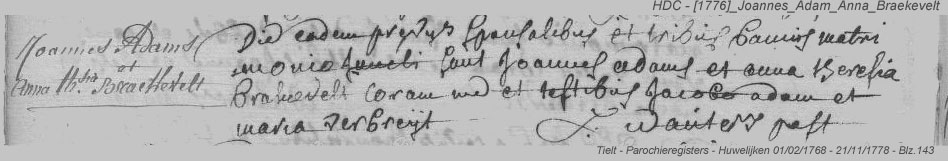 HDC - [1776]_Joannes_Adam_Anna_Braekevelt
Joannes Adams
et
Anna Th:sia Braekevelt
Die eadem prævijs sponsalibus et tribus bannis matri
monio juncti sunt Joannes adams et anna theresia
Brakevelt coram me et testibus Jacobo adam et
maria verbreijt J. wauters past
Tielt - Parochieregisters - Huwelijken 01/02/1768 - 21/11/1778 - Blz.143